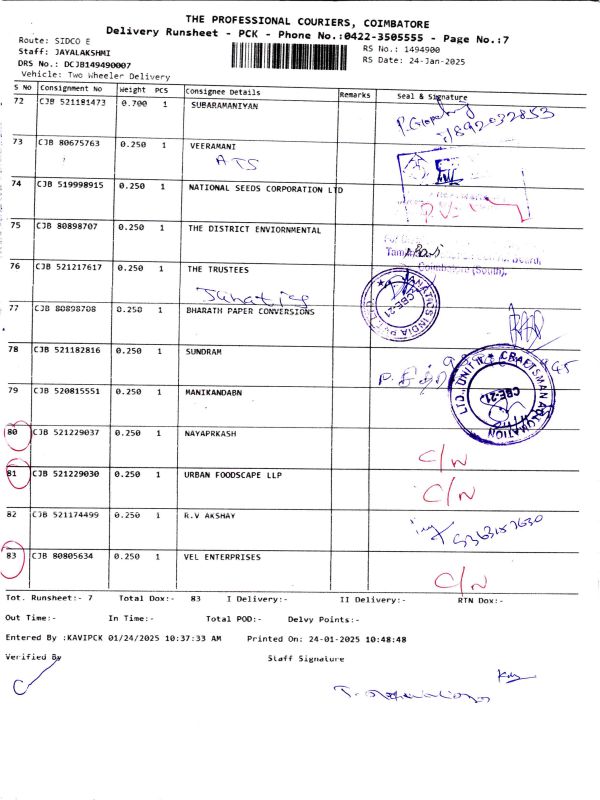 THE PROFESSIONAL COURIERS, COIMBATORE
Delivery Runsheet - PCK - Phone No.:0422-3505555 - Page No.:7
Route: SIDCO E
Staff: JAYALAKSHMI
RS No.: 1494900
DRS No.: DCJB149490007
RS Date: 24-Jan-2025
Vehicle: Two Wheeler Delivery
S No Consignment No Weight PCS Consignee Details Remarks Seal & Signature
72 CJB 521181473 0.700 1 SUBARAMANIYAN
73 CJB 80675763 0.250 1 VEERAMANI
ATS
74 CJB 519998915 0.250 1 NATIONAL SEEDS CORPORATION LTD
75 CJB 80898707 0.250 1 THE DISTRICT ENVIORNMENTAL
Coimbatore (South).
76 CJB 521217617 0.250 1 THE TRUSTEES
77 CJB 80898708 0.250 1 BHARATH PAPER CONVERSIONS
CBE-21
78 CJB 521182816 0.250 1 SUNDRAM
79 CJB 520815551 0.250 1 MANIKANDABN
LTD., UNIT IV ★ CRAFTSMAN AUTOMATION
CBE-21
80 CJB 521229037 0.250 1 NAYAPRKASH C/N
81 CJB 521229030 0.250 1 URBAN FOODSCAPE LLP C/N
82 CJB 521174499 0.250 1 R.V AKSHAY
83 CJB 80805634 0.250 1 VEL ENTERPRISES C/N
Tot. Runsheet:- 7 Total Dox:- 83 I Delivery:- II Delivery:- RTN Dox:-
Out Time:- In Time:- Total POD:- Delvy Points:-
Entered By :KAVIPCK 01/24/2025 10:37:33 AM Printed On: 24-01-2025 10:48:48
Verified By Staff Signature